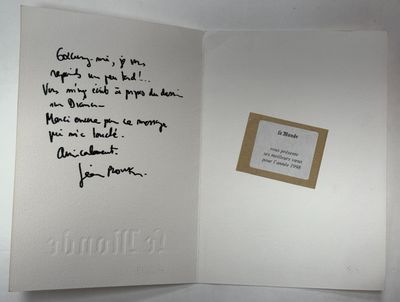 Excusez-moi, je vous
réponds un peu tard !...
Vous m'avez écrit à propos du dessin
sur
Merci encore pour ce message
qui m'a touché.
Amicalement.
Jean
le Monde
Le Monde
vous présente
ses meilleurs vœux
pour l'année 1998